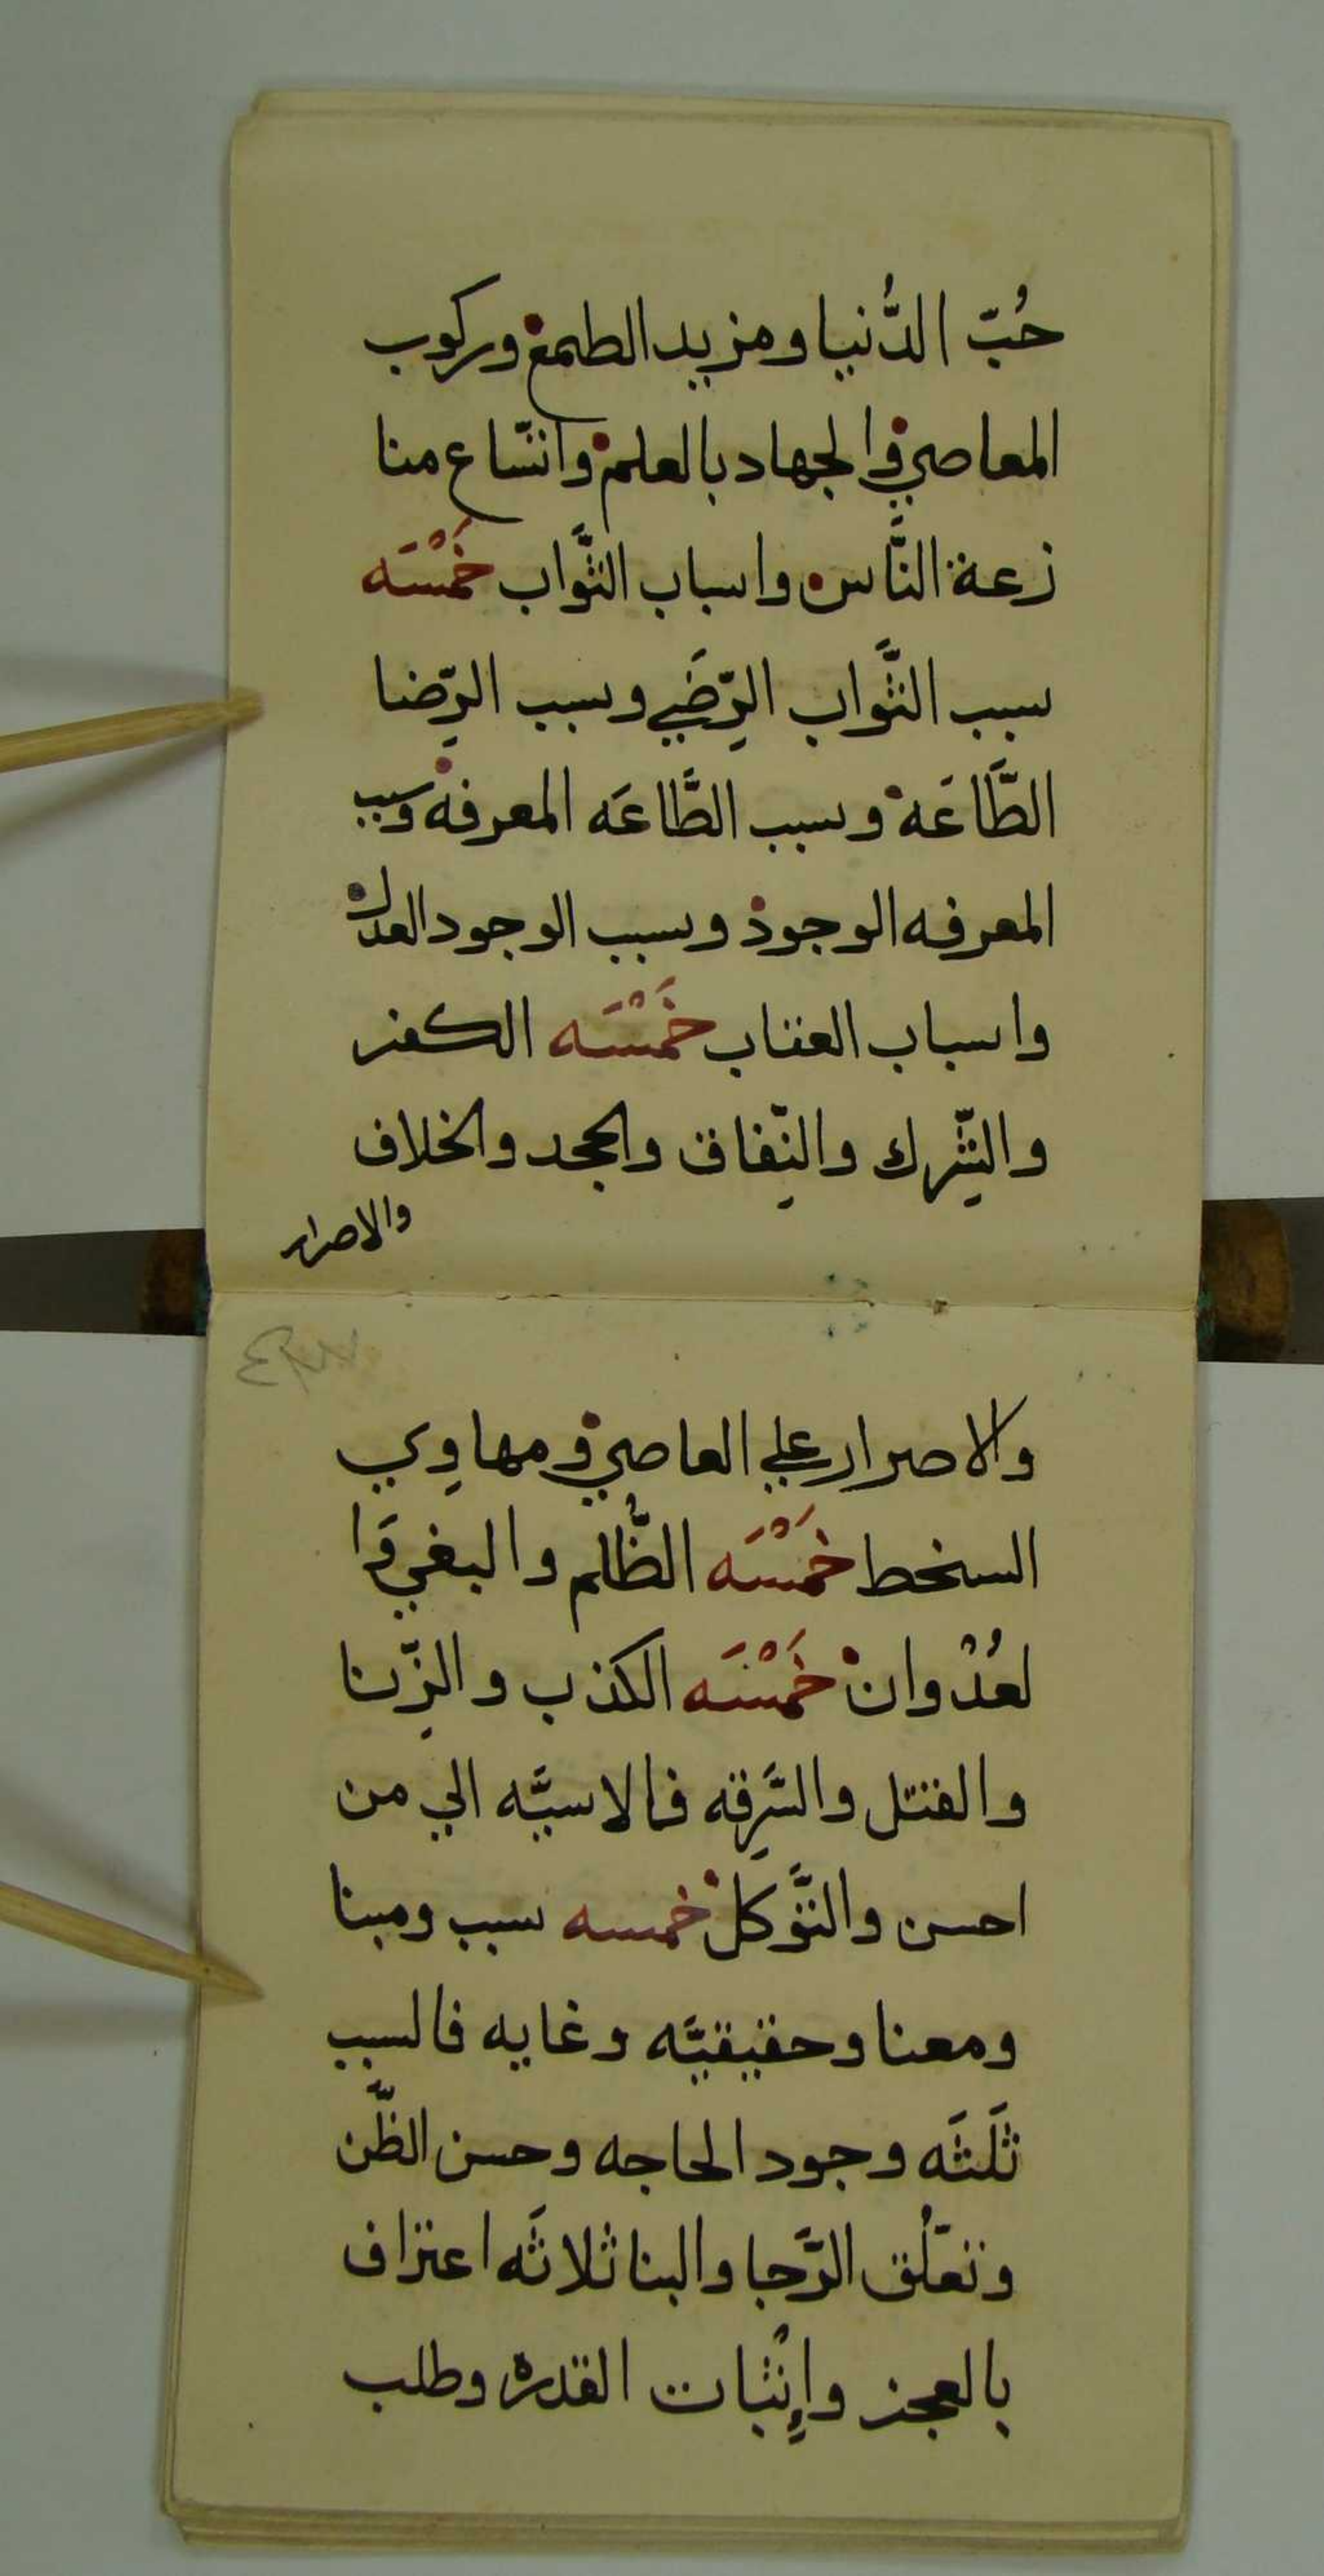 حُبّ الدُّنيا ومزيد الطمع وركوب
المعاصي والجهاد بالعلم واتساع منا
زعة النَّاس واسباب الثَّواب خَمْسَه
سبب الثَّواب الرِّضَي وسبب الرِّضا
الطَّاعَة وسبب الطَّاعَه المعرفه وسبب
المعرفه الوجود وسبب الوجود العدل
واسباب العقاب خَمْسَه الكفر
والشِّرك والنِّفاق والجحد والخلاف
والاصرار
والاصرار علي العاصي ومهاوِي
السخط خَمْسَه الظُّلم والبغي وَا
لعُدْوان خَمْسَه الكذب والزِّنا
والقتل والسَّرِقه فالاسيَّه الي من
احسن والتَّوكل خمسه سبب ومبنا
ومعنا وحقيقيَّه وغايه فالسبب
ثَلَثَه وجود الحاجه وحسن الظَّن
وتعلُّق الرَّجا والبنا ثلاثَه اعتراف
بالعجز وإِثْبات القدره وطلب